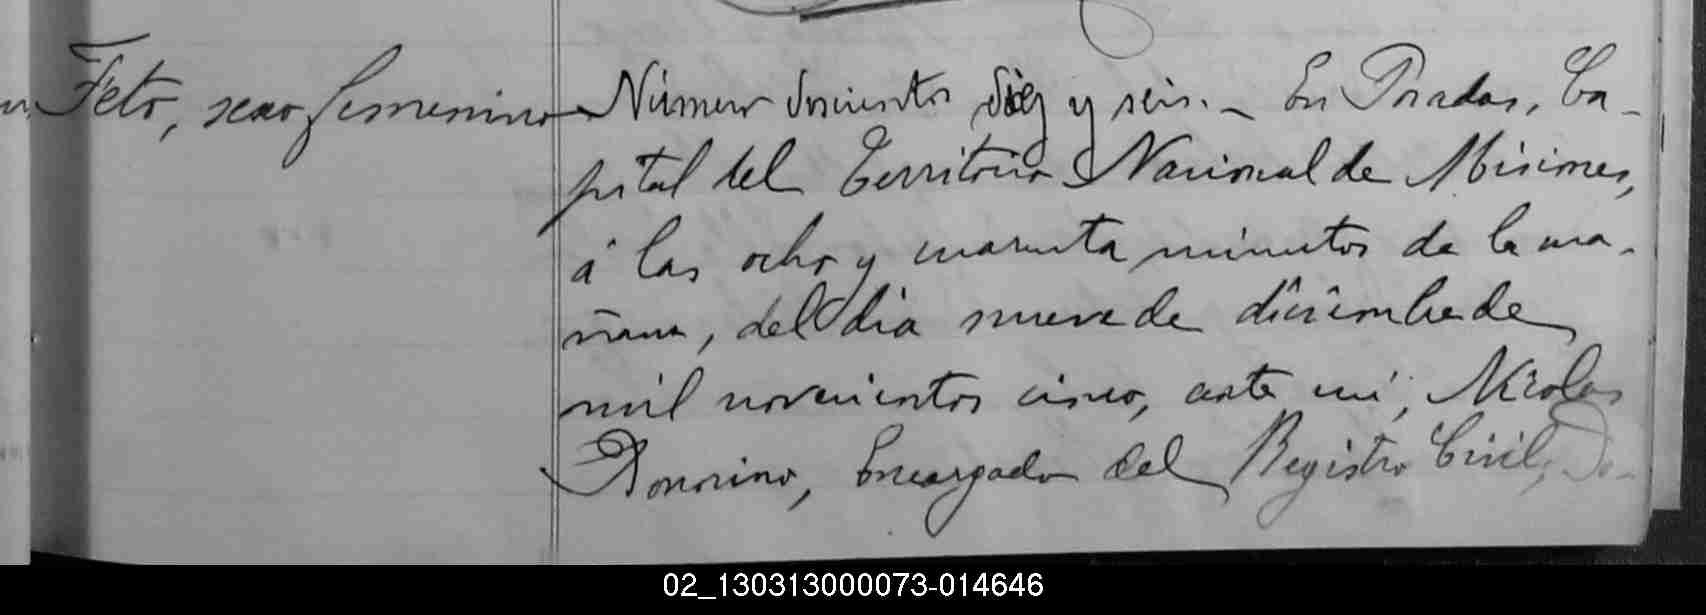 Feto, sexo femenino
Número doscientos diez y seis. – En Posadas, Ca-
pital del Territorio Nacional de Misiones,
á las ocho y cuarenta minutos de la ma-
ñana, del dia nueve de diciembre de
mil novecientos cinco, ante mi, Nicolas
Bonorino, Encargado del Registro Civil, Do-
02_130313000073-014646